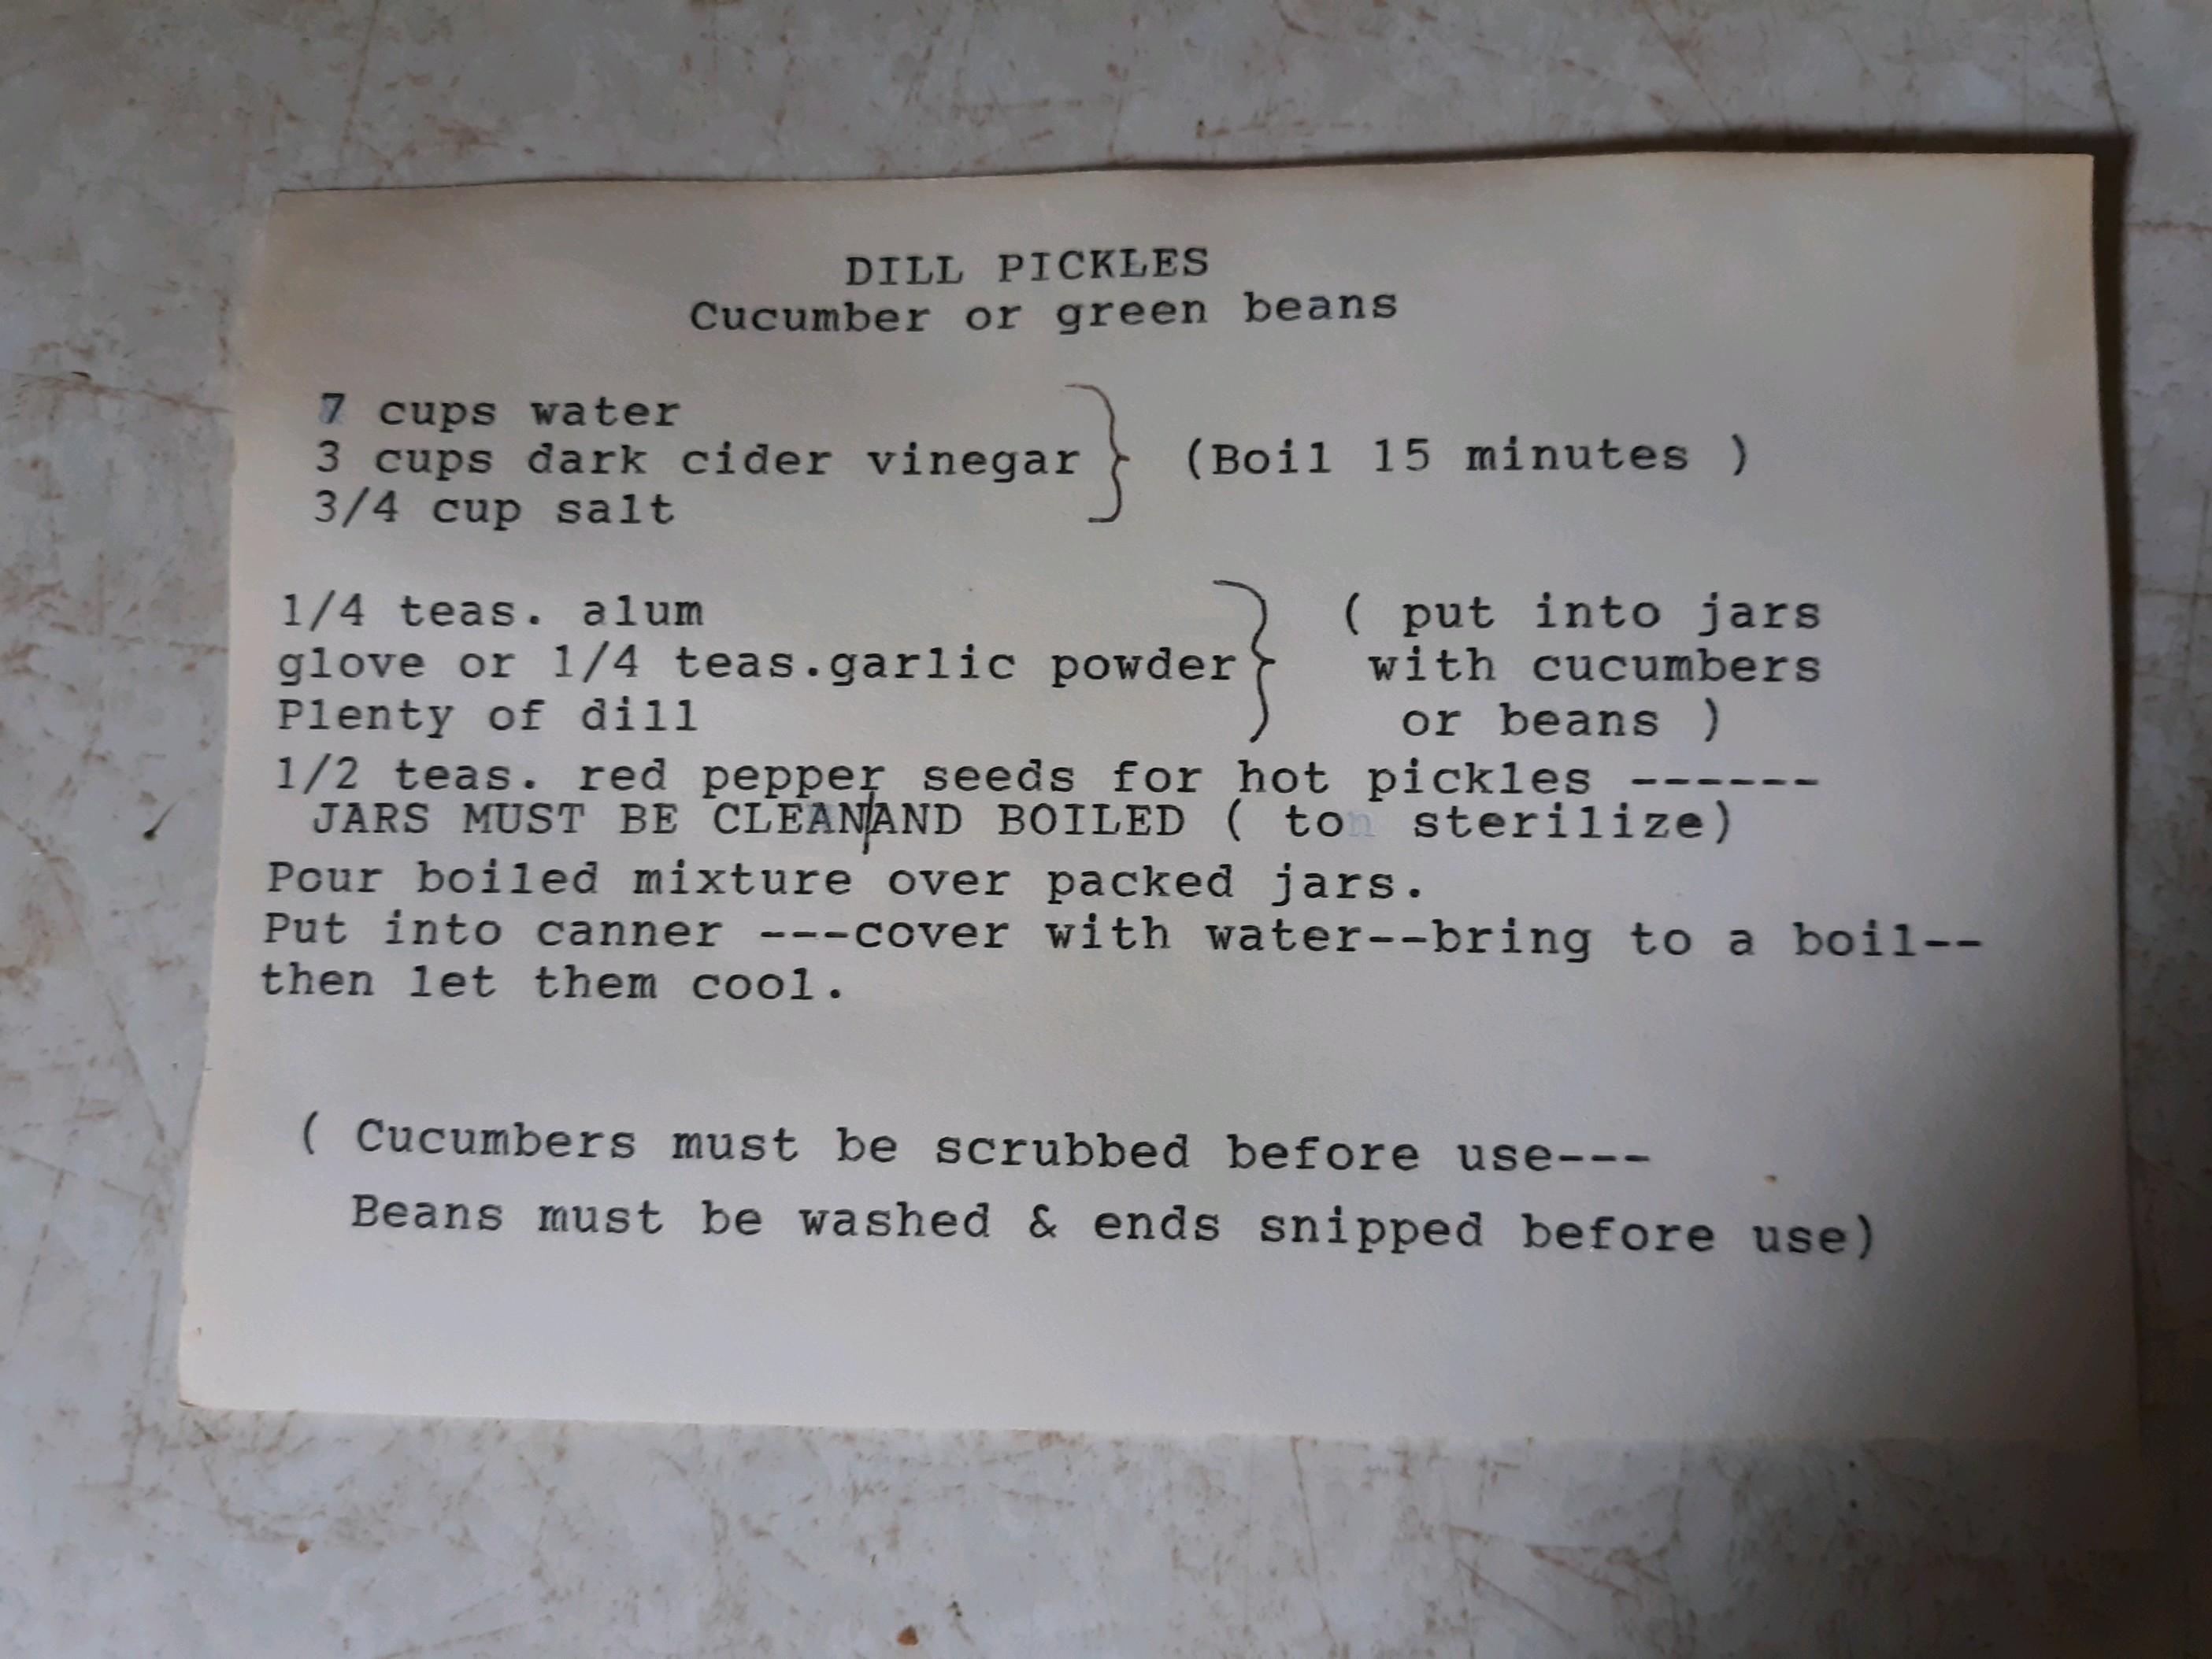 DILL PICKLES
Cucumber or green beans
7 cups water
3 cups dark cider vinegar
3/4 cup salt
(Boil 15 minutes )
1/4 teas. alum
glove or 1/4 teas.garlic powder
Plenty of dill
( put into jars
with cucumbers
or beans )
1/2 teas. red pepper seeds for hot pickles ------
JARS MUST BE CLEAN/AND BOILED ( to sterilize)
Pour boiled mixture over packed jars.
Put into canner ---cover with water--bring to a boil--
then let them cool.
( Cucumbers must be scrubbed before use---
Beans must be washed & ends snipped before use)